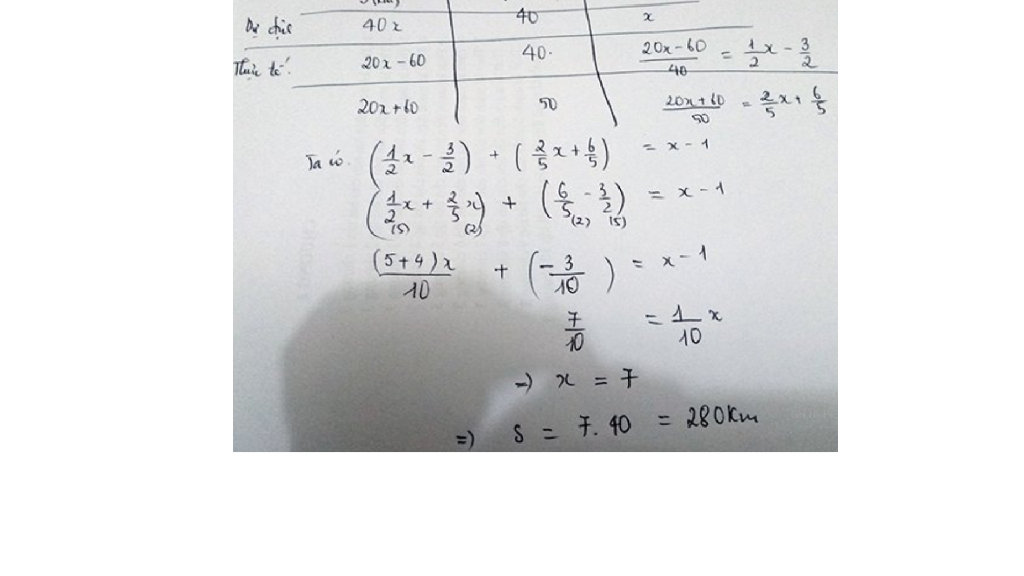 Dự định 40x 40 x
Thực tế 20x - 60 40. 20x - 60/40 = 1/2 x - 3/2
20x + 60 50 20x + 60/50 = 2/5 x + 6/5
Ta có. (1/2 x - 3/2) + (2/5 x + 6/5) = x - 1
(1/2 x + 2/5 x) + (6/5 - 3/2) = x - 1
(5) (2) (2) (5)
(5+4)x/10 + (-3/10) = x - 1
7/10 = 1/10 x
=) x = 7
=) S = 7. 40 = 280km